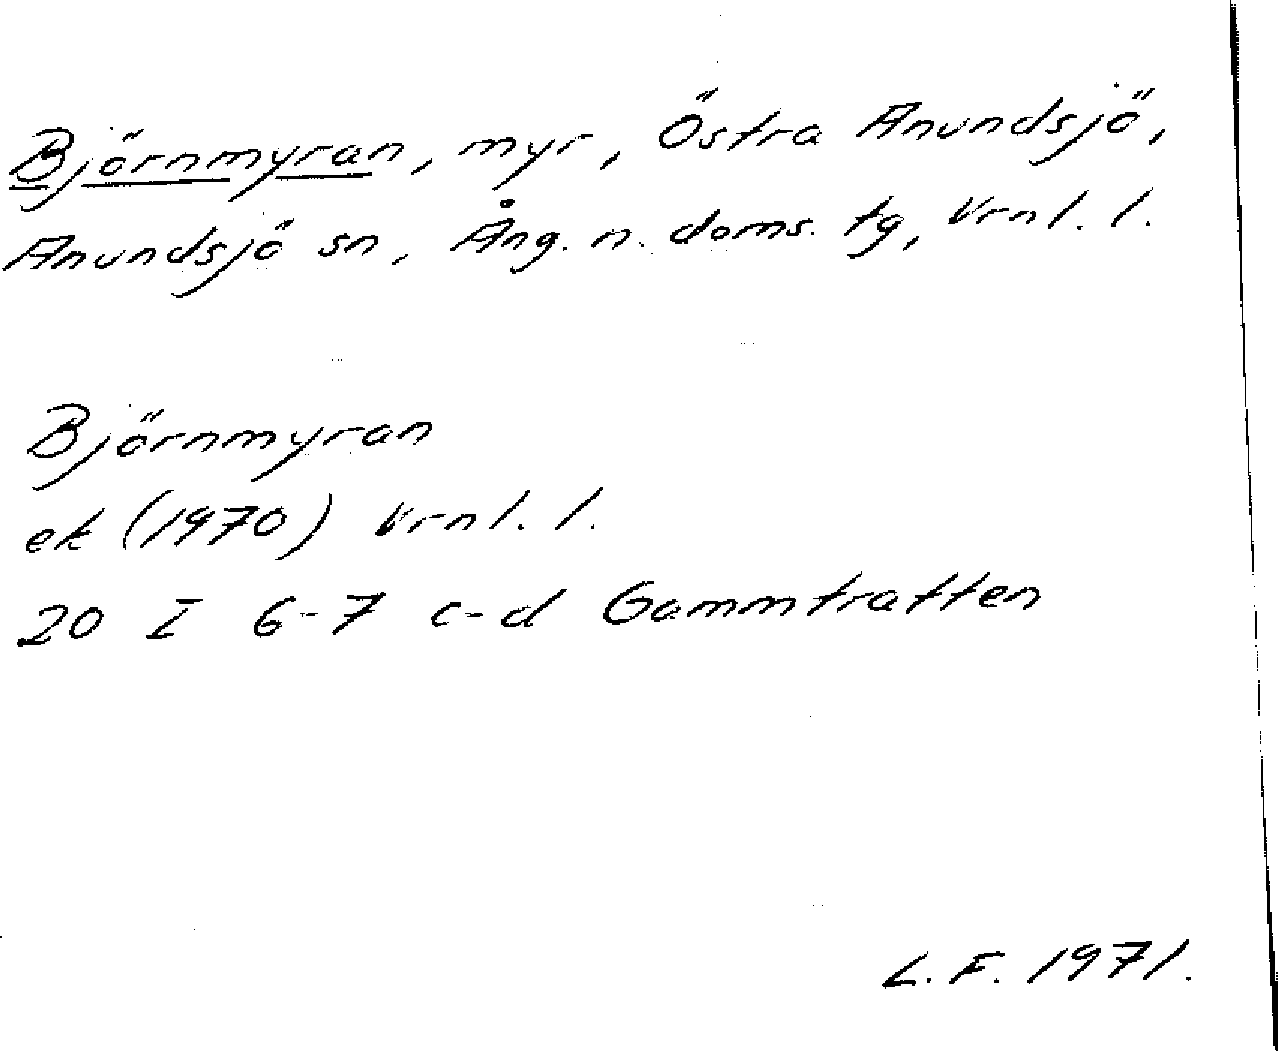 Björnmyran, myr, Östra Anundsjö,
Anundsjö sn, Ång. n. doms. tg, Vrnl. l.
Björnmyran
ek (1970) Vrnl. l.
20 I 6-7 c-d Gammtratten
L. F. 1971.